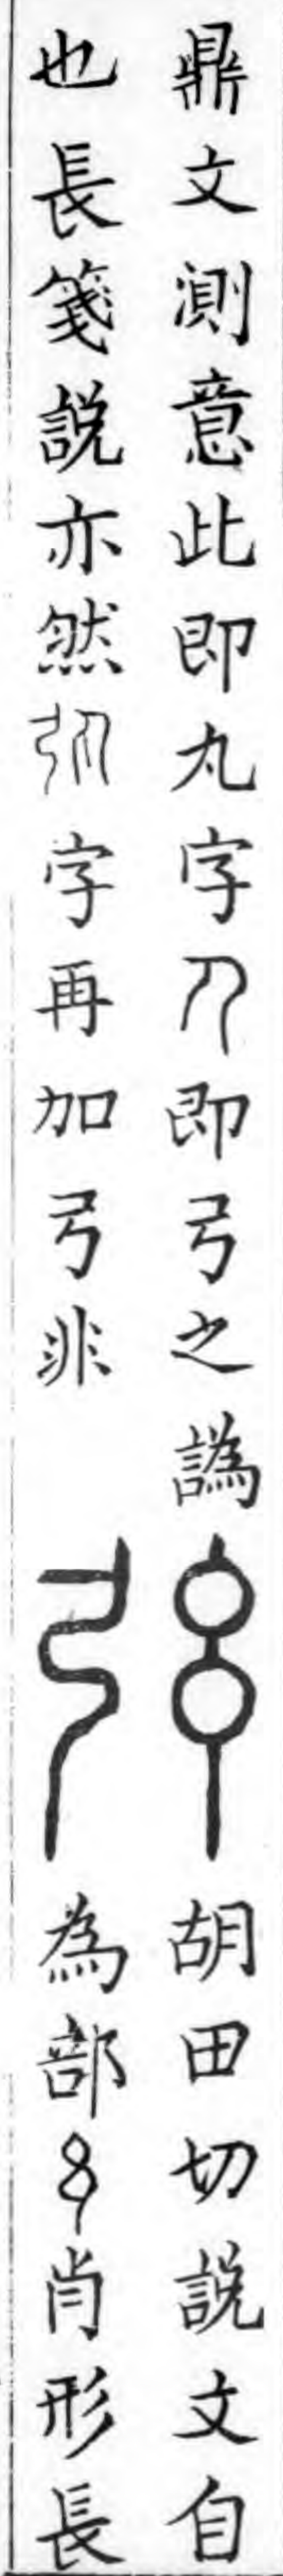 鼎文測意此即丸字即弓之譌胡田切説文自
也長箋説亦然字再加弓非為部肖形長